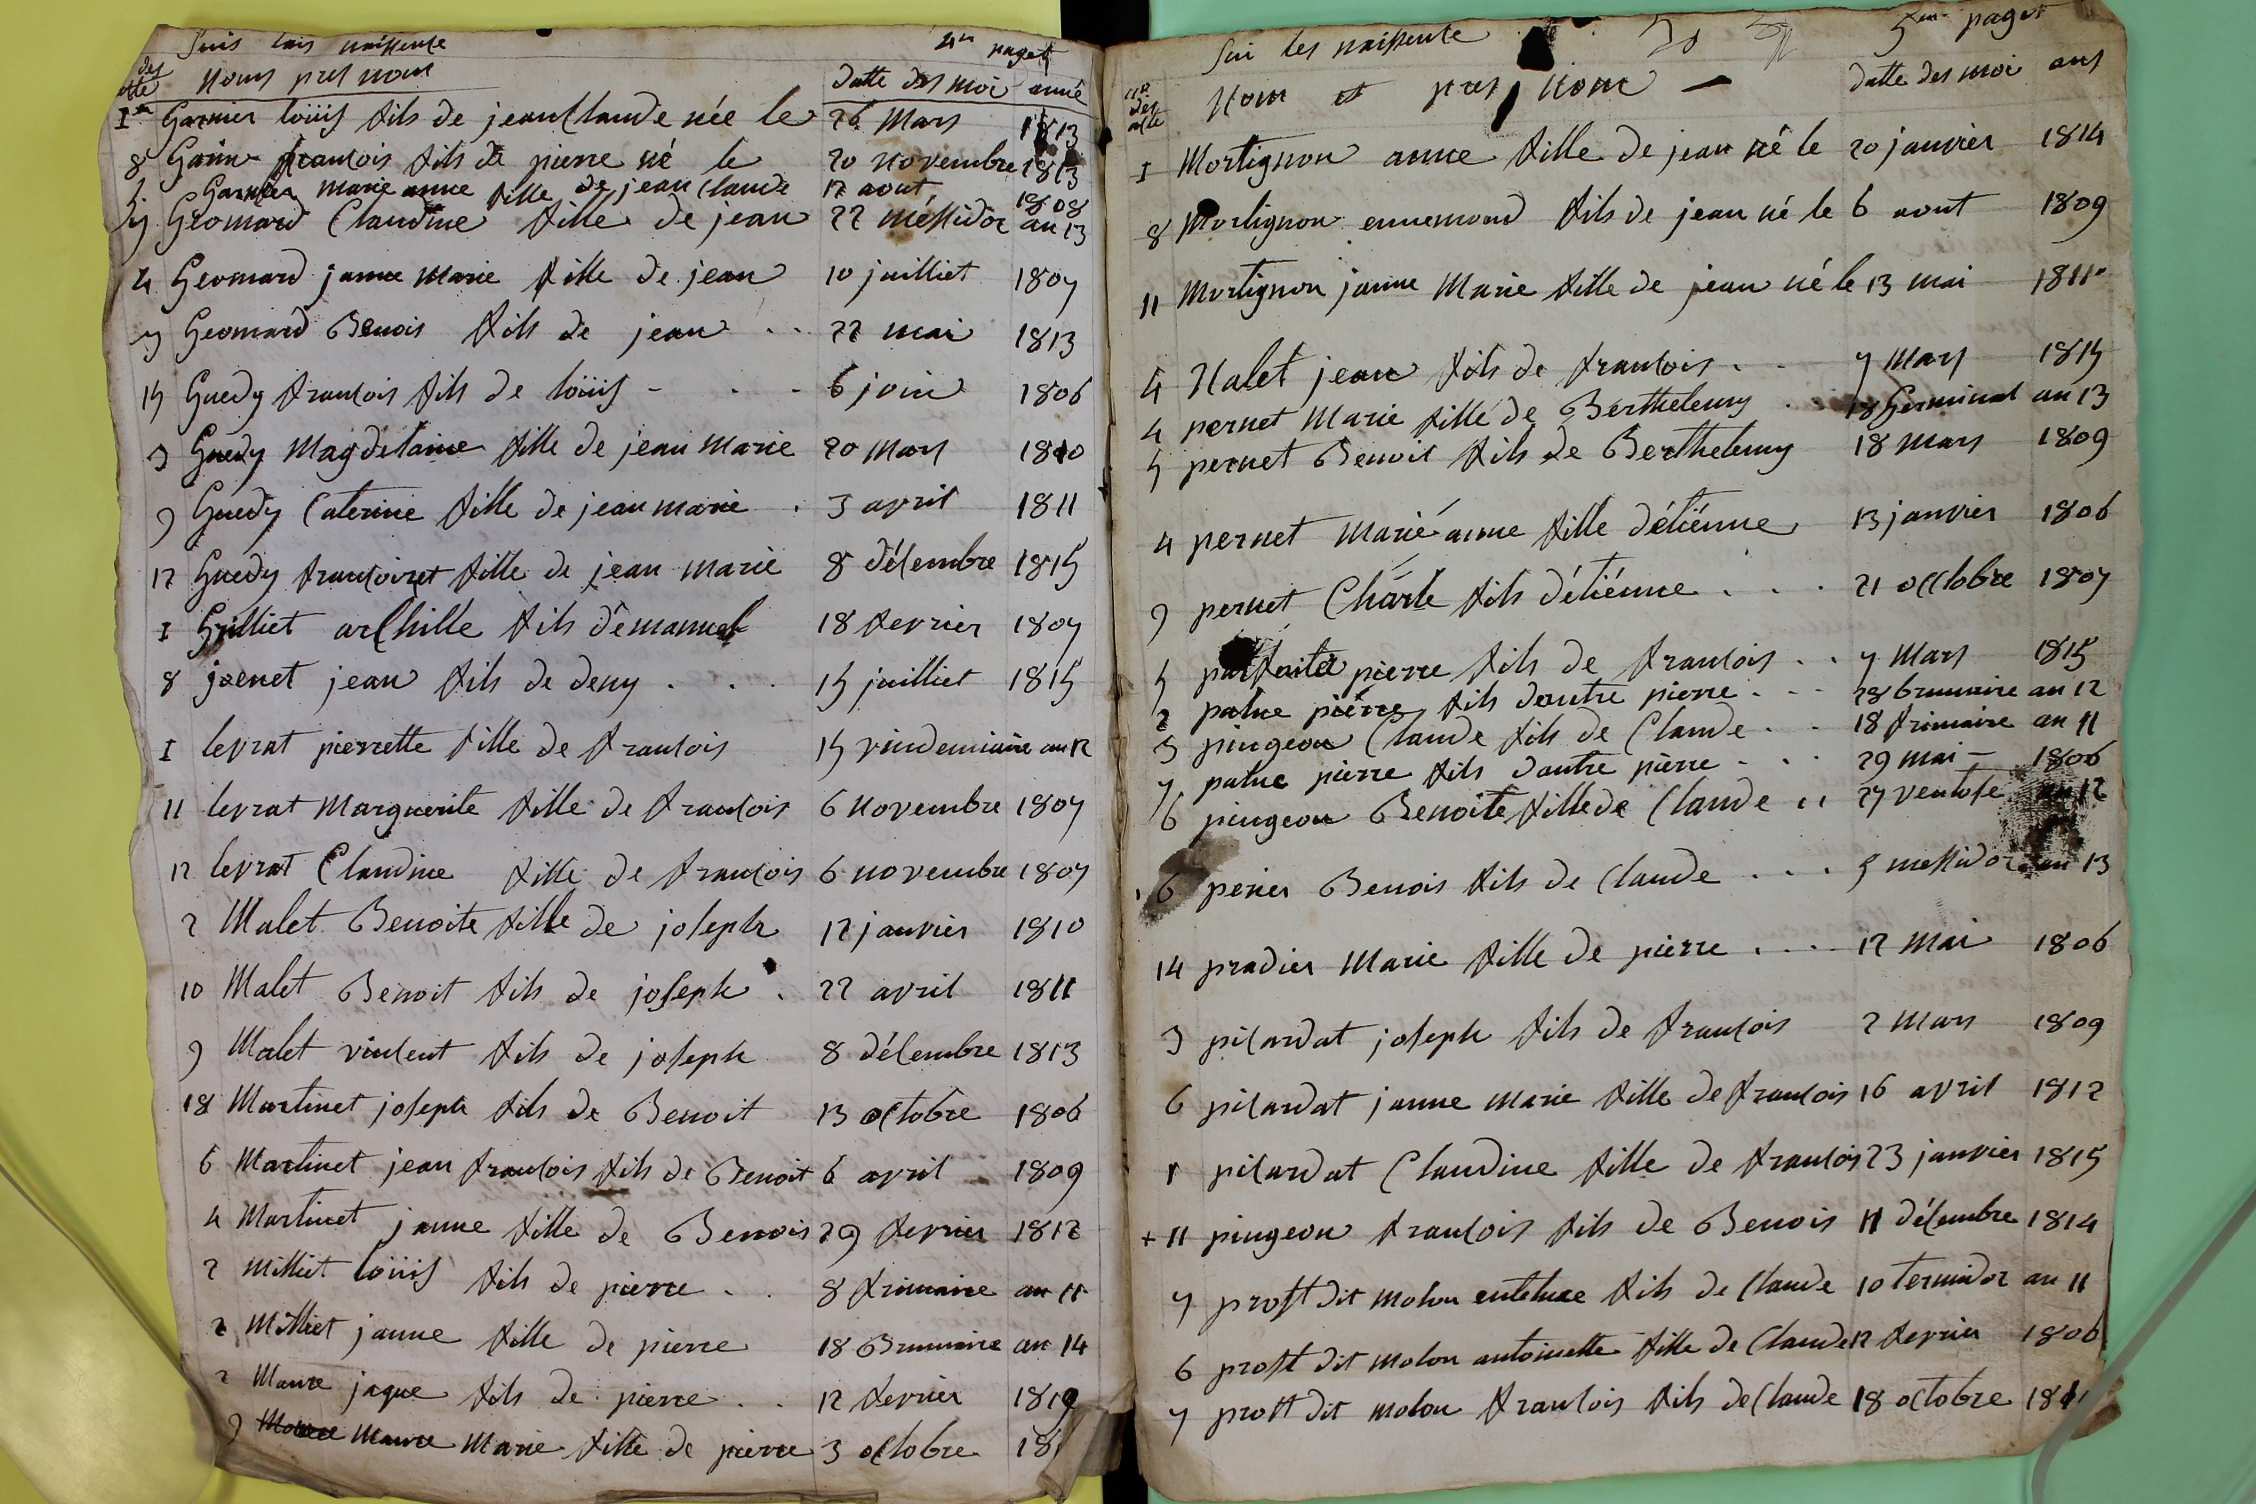 Suis lais naissense 4me paget
des acte Noms pres nom datte des moi anné
1er Garnier loüis fils de jean Claude née le 26 Mars 1813
8 Garin francois fils de pierre né le 20 novembre 1813
5 Garnier marie anne fille de jean Claude 12 aout 1808
7 Geomard Claudine fille de jean 22 méssidor an 13
4 Geomard janne Marie fille de jean 10 juilliet 1807
7 Geomard Benois fils de jean . . 22 mai 1813
15 Guedy francois fils de loüis - . . 6 join 1806
3 Guedy Magdelaine fille de jean Marie 20 Mars 1810
9 Guedy Caterine fille de jean marie . 3 avril 1811
12 Guedy francoiset fille de jean marie 8 décembre 1815
1 Grilliet archille fils démanuel 18 fevrier 1807
8 joenet jean fils de deny . . . 15 juilliet 1815
1 levrat pierrette fille de francois 15 vindemiaire an 12
11 levrat Marguerite fille de francois 6 novembre 1807
12 levrat Claudine fille de francois 6 novembre 1807
2 Malet Benoite fille de joseph 12 janvier 1810
10 Malet Benoit fils de joseph . 22 avril 1811
9 Malet vincent fils de joseph 8 décembre 1813
18 Martinet joseph fils de Benoit 13 octobre 1806
6 Martinet jean francois fils de Benoit 6 avril 1809
4 Martinet janne fille de Benois 29 fevrier 1812
2 Milliet loüis fils de pierre . . 8 frimaire an 11
2 Milliet janne fille de pierre 18 Brumaire an 14
2 Maure jaque fils de pierre . . 12 fevrier 1819
9 Maure Marie fille de pierre 3 octobre 18
Sui les naissense 5me paget
no des acte Nom et pres nom - datte des moi ans
1 Mortignon anne fille de jean né le 20 janvier 1814
8 Mortignon ennemond fils de jean né le 6 aout 1809
11 Mortignon janne Marie fille de jean né le 13 mai 1811
4 Nalet jean fils de francois . . 7 Mars 1815
4 pernet Marie fille de Berthelemy . 18 Germinal an 13
5 pernet Benoit fils de Berthelemy 18 mars 1809
4 pernet marie anne fille détiénne 13 janvier 1806
9 pernet Charle fils détiénne . . . 21 occtobre 1807
5 pierre fils de francois . . 7 Mars 1815
2 palue pierre fils dautre pierre . - - 28 brumaire an 12
3 pingeon Claude fils de Claude . . 18 frimaire an 11
7 palue pierre fils dautre pierre - . . 29 mai - 1806
6 pingeon Benoite fille de Claude . . 27 ventose an 12
6 perier Benois fils de Claude . . . . 5 messidor an 13
14 pradier Marie fille de pierre . . . . 12 Mai 1806
3 picardat joseph fils de francois 2 Mars 1809
6 picardat janne marie fille de francois 16 avril 1812
1 picardat Claudine fille de francois 23 janvier 1815
+ 11 pingeon francois fils de Benois 11 décembre 1814
7 prost dit molon fils de Claude 10 termidor an 11
6 prost dit molon antoinette fille de Claude 12 fevrier 1806
7 prost dit molon francois fils de Claude 18 octobre 1811